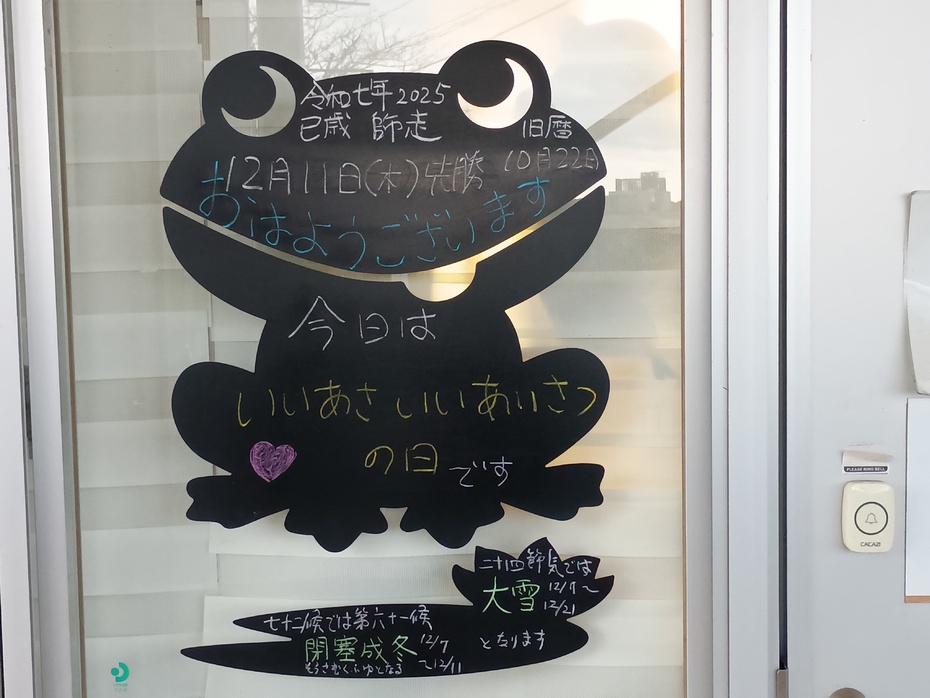 令和七年 2025
巳歳 師走
旧暦
10月22日
12月11日(木)先勝
おはようございます
今日は
いいあさ いいあいさつ
の日です
二十四節気では
大雪 12/7～
12/21
七十二候では第六十一候
閉塞成冬 12/7
～12/11
そらさむくふゆとなる
となります
PLEASE RING BELL
CACAZI